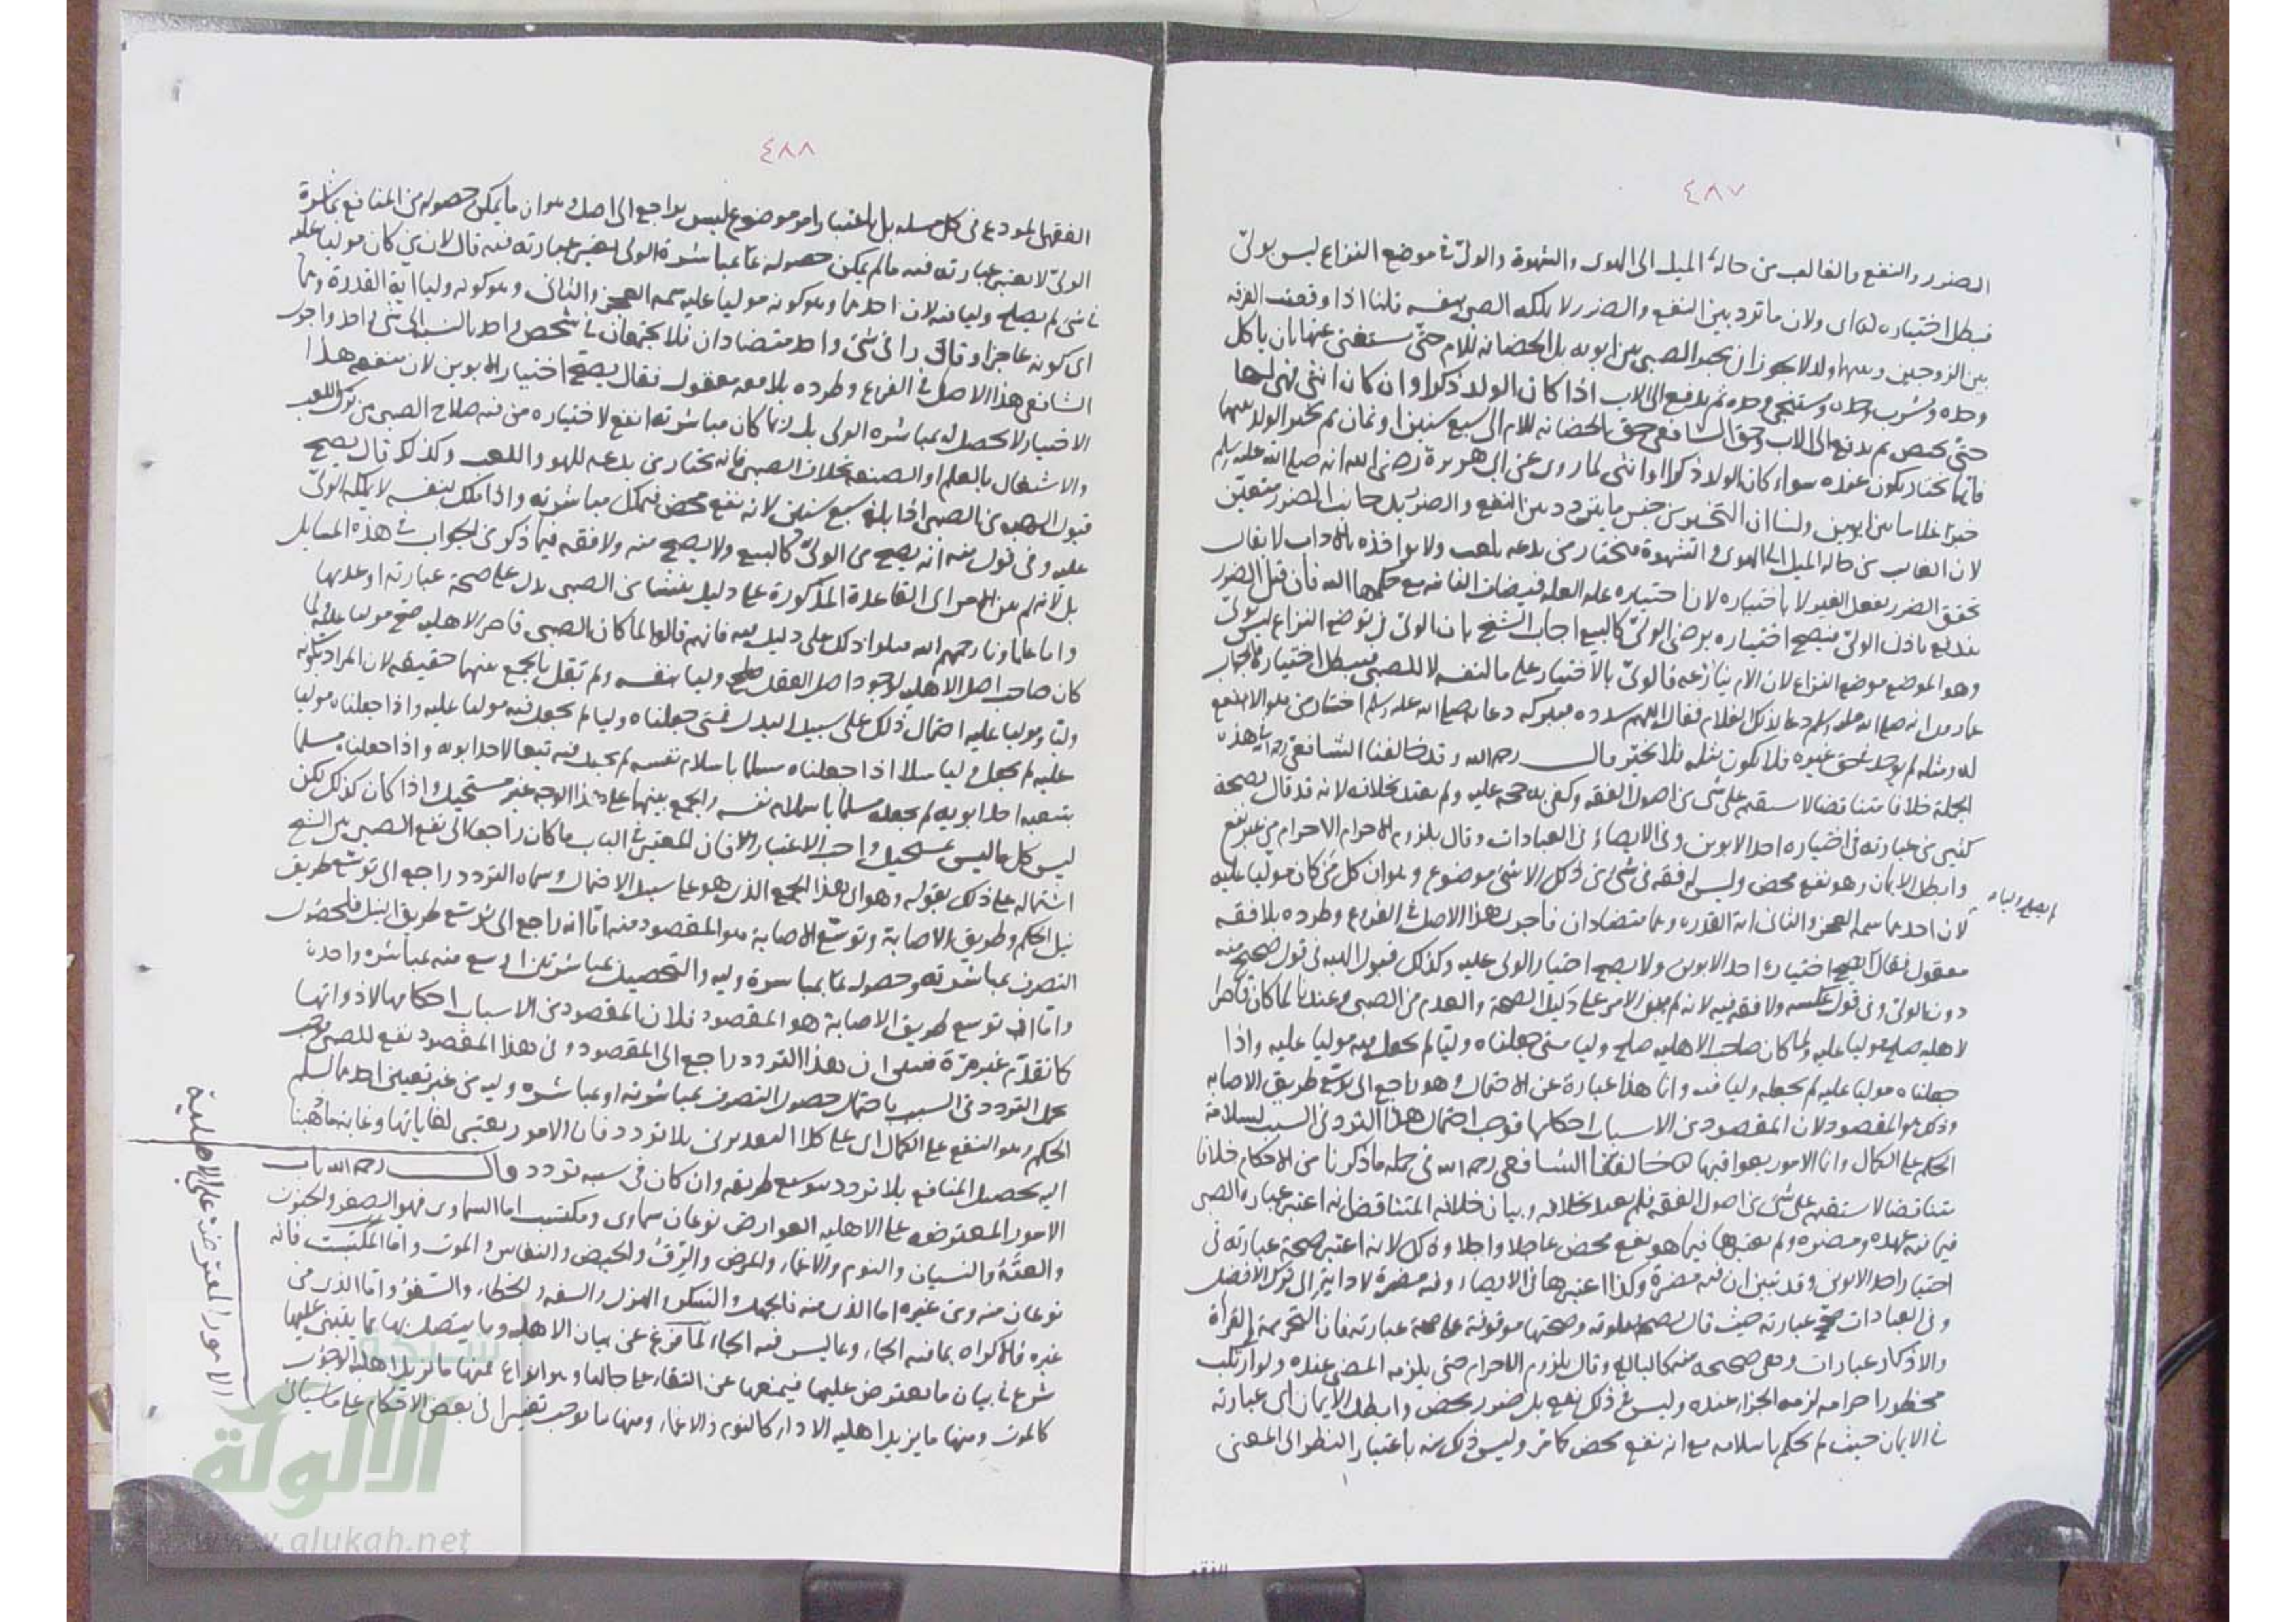 ٤٨٧
الضرر والنفع والغالب من حاله الميل الى الهوى والشهوة والولى فى موضع النزاع ليس بولى
فبطل اختياره اى ولان ما تردد بين النفع والضرر لا يملكه الصبى بنفسه قلنا اذا وقعت الفرقة
بين الزوجين وبينهما ولد لا يجوز ان يخير الصبى بين ابويه بل الحضانة للام حتى يستغنى عنها بان ياكل
وحده ويشرب وحده ويستنجى وحده ثم يدفع الى الاب اذا كان الولد ذكرا وان كان انثى فهى لها
حتى تحيض ثم يدفع الى الاب وحق الشافعى حق الحضانة للام الى سبع سنين او ثمان ثم يخير الولد بينهما
فايهما يختار يكون عنده سواء كان الولد ذكرا او انثى لما روى عن ابى هريرة رضى الله انه صلى الله عليه وسلم
خير غلاما بين ابوين ولنا ان التخيير من جنس ما يتردد بين النفع والضرر بل جانب الضرر متعين
لان الغالب من حاله الميل الى الهوى والشهوة فيختار من يدعه يلعب ولا يؤاخذه بالآداب لا يقال
تحقق الضرر بفعل الغير لا باختياره لان اختياره علة العلة فيضاف الفاقة مع حكمها اليه فان قيل الضرر
يندفع باذن الولى فيصح اختياره برضى الولى كالبيع اجاب الشيخ بان الولى فى موضع النزاع ليس بولى
وهو الموضع موضع النزاع لان الام تنازعه فالولى بالاختيار على ما لنفسه لا للصبى فيبطل اختياره فالجواب
عما روى انه صلى الله عليه وسلم دعا لذلك الغلام فقال اللهم سدده فببركة دعائه صلى الله عليه وسلم اختار من هو الانفع
له ومثله لم يوجد فى حق غيره فلا يكون مثله فلا يخير قال رحمه الله وقد خالفنا الشافعى رحمه الله فى هذه
الجملة خلافا متناقضا لا يستقيم على شئ من اصول الفقه وكفى به حجة عليه ولم يعتد بخلافه لانه قد قال بصحة
كثير من عبارته فى اختياره احد الابوين وفى الايصاء وفى العبادات وقال بلزوم الاحرام من غير نفع
وابطل الايمان وهو نفع محض وليس له فقه فى شئ من ذلك الا شئ موضوع وهو ان كل من كان موليا عليه
لم يصلح وليا
لان احدهما سمة العجز والثانى اية القدرة وهما متضادان فاجرى هذا الاصل فى الفروع وطرده بلا فقه
معقول فقال يصح اختياره احد الابوين ولا يصح اختيار الولى عليه وكذلك قبول الهبة فى قول يصح منه
دون الولى وفى قول عكسه ولا فقه فيه لانه لم يبن الامر على دليل الصحة والعدم من الصبى وعندنا لما كان قاصر
الاهلية صلح موليا عليه ولما كان صاحب الاهلية صلح وليا متى جعلناه وليا لم نجعل فيه موليا عليه واذا
جعلناه موليا عليه لم نجعله وليا فيه وانما هذا عبارة عن الاحتمال وهو راجع الى توسع طريق الاصابة
وذلك هو المقصود لان المقصود من الاسباب احكامها فوجب احتمال هذا التردد فى السبب لسلامة
الحكم على الكمال وانما الامور بعواقبها وخالفنا الشافعى رحمه الله فى جملة ما ذكرنا من الاحكام خلافا
متناقضا لا يستقيم على شئ من اصول الفقه فلم يعتد بخلافه وبيان خلافه المتناقض انه اعتبر عبارة الصبى
فيما فيه عهدة ومضرة ولم يعتبرها فيما هو نفع محض عاجلا واجلا وذلك لانه اعتبر صحة عبارته فى
اختيار احد الابوين وقد تبين ان فيه مضرة وكذا اعتبرها فى الايصاء وفيه مضرة لادائه الى ترك الافضل
وفى العبادات صح عبارته حيث قال بصحة صلوته وصحتها موقوفة على صحة عبارته فان التحريمة والقراة
والاذكار عبادات وهى صحيحة منه كالبالغ وقال بلزوم الاحرام حتى يلزمه المضى عنده ولو ارتكب
محظور احرامه لزمه الجزاء عنده وليس فى ذلك نفع بل ضرر محض وابطل الايمان اى عبارته
فى الايمان حيث لم يحكم باسلامه مع انه نفع محض كما مر وليس ذلك منه باعتبار النظر الى المعنى
٤٨٨
الفقهى المودع فى كل مسلة بل باعتبار امر موضوع ليس براجع الى اصل وهو ان ما يمكن حصوله من المنافع بمباشرة
الولى لا يعتبر عبارته فيه وما لم يمكن حصوله بمباشرة الولى يعتبر عبارته فيه قال لان من كان موليا عليه
فى شئ لم يصلح وليا فيه لان احدهما وهو كونه موليا عليه سمة العجز والثانى وهو كونه وليا اية القدرة وهما
اى كونه عاجزا وقادرا فى شئ واحد متضادان فلا يجتمعان فى شخص واحد بالنسبة الى شئ واحد واجرى
الشافعى هذا الاصل فى الفروع وطرده بلا فقه معقول فقال يصح اختيار الابوين لان منفعة هذا
الاختيار لا يحصل له بمباشرة الولى بل ربما كان مباشرته انفع لاختياره من فيه صلاح الصبى من ترك اللعب
والاشتغال بالعلم او الصنعة بخلاف الصبى فانه يختار من يدعه للهو واللعب وكذلك قال يصح
قبول الهبة من الصبى اذا بلغ سبع سنين لانه نفع محض فيملك مباشرته واذا ملك بنفسه لا يملكه الولى
عليه وفى قول منه انه يصح من الولى كالبيع ولا يصح منه ولا فقه فيما ذكر من الجواب فى هذه المسايل
بل لانه لم يبن الامر اى القاعدة المذكورة على دليل ينشا من الصبى يدل على صحة عبارته او عدمها
واما علماؤنا رحمهم الله فبنوا ذلك على دليل فيه فانهم قالوا لما كان الصبى قاصر الاهلية صح موليا عليه ولما
كان صاحب اصل الاهلية لوجود اصل العقل صلح وليا بنفسه ولم نقل بالجمع بينهما حقيقة لان المراد بكونه
وليا وموليا عليه احتمال ذلك على سبيل البدل فمتى جعلناه وليا لم نجعل فيه موليا عليه واذا جعلناه موليا
عليه لم نجعل وليا مثلا اذا جعلناه مسلما باسلام نفسه لم نجعل فيه تبعا لاحد ابويه واذا جعلناه مسلما
بتبعية احد ابويه لم نجعله مسلما باسلام نفسه والجمع بينهما على هذا الوجه غير مستحيل واذا كان كذلك لكن
ليس كل ما ليس بمستحيل واجب الاعتبار الا فان المعتبر فى الباب ما كان راجعا الى نفع الصبى بين الشيخ
اشتماله على ذلك بقوله وهو اى هذا الجمع الذى هو على سبيل الاحتمال وسماه التردد راجع الى توسع طريق
نيل الحكم وطريق الاصابة وتوسع الاصابة هو المقصود منه اما انه راجع الى توسع طريق النيل فلحصول
التصرف بمباشرته وحصوله بمباشرة وليه والتحصيل بمباشرتين اوسع منه بمباشرة واحدة
واما ان توسع طريق الاصابة هو المقصود فلان المقصود من الاسباب احكامها لا ذواتها
كما تقدم غير مرة فعلى ان هذا التردد راجع الى المقصود وفى هذا المقصود نفع للصبى فوجب
تحمل التردد فى السبب باحتمال حصول التصرف بمباشرته او بمباشرة وليه من غير تعيين احدهما لسلم
الحكم وهو النفع على الكمال اى على كلا التقديرين بلا تردد فان الامور يعتبر لغاياتها وغاية ما هنا
اليه تحصيل المنافع بلا تردد بتوسع طريقه وان كان فى سببه تردد قال رحمه الله باب
الامور المعترضة على الاهلية العوارض نوعان سماوى ومكتسب اما السماوى فهو الصغر والجنون
والعته والنسيان والنوم والاغماء والمرض والرق والحيض والنفاس والموت واما المكتسب فانه
نوعان منه ومن غيره اما الذى منه فالجهل والسكر والهزل والسفه والخطاء والسفر واما الذى من
غيره فالاكراه بما فيه الجاء وبما ليس فيه الجاء لما فرغ عن بيان الاهلية وما يتصل بها مما يبتنى عليها
شرع فى بيان ما يعترض عليها فيمنعها عن البقاء على حالها وهو انواع فمنها ما يزيل اهلية الوجوب
كالموت ومنها ما يزيل اهلية الاداء كالنوم والاغماء ومنها ما يوجب تغييرا فى بعض الاحكام على ما سياتى
الامور المعترضة على الاهلية
شبكة
الألوكة
www.alukah.net